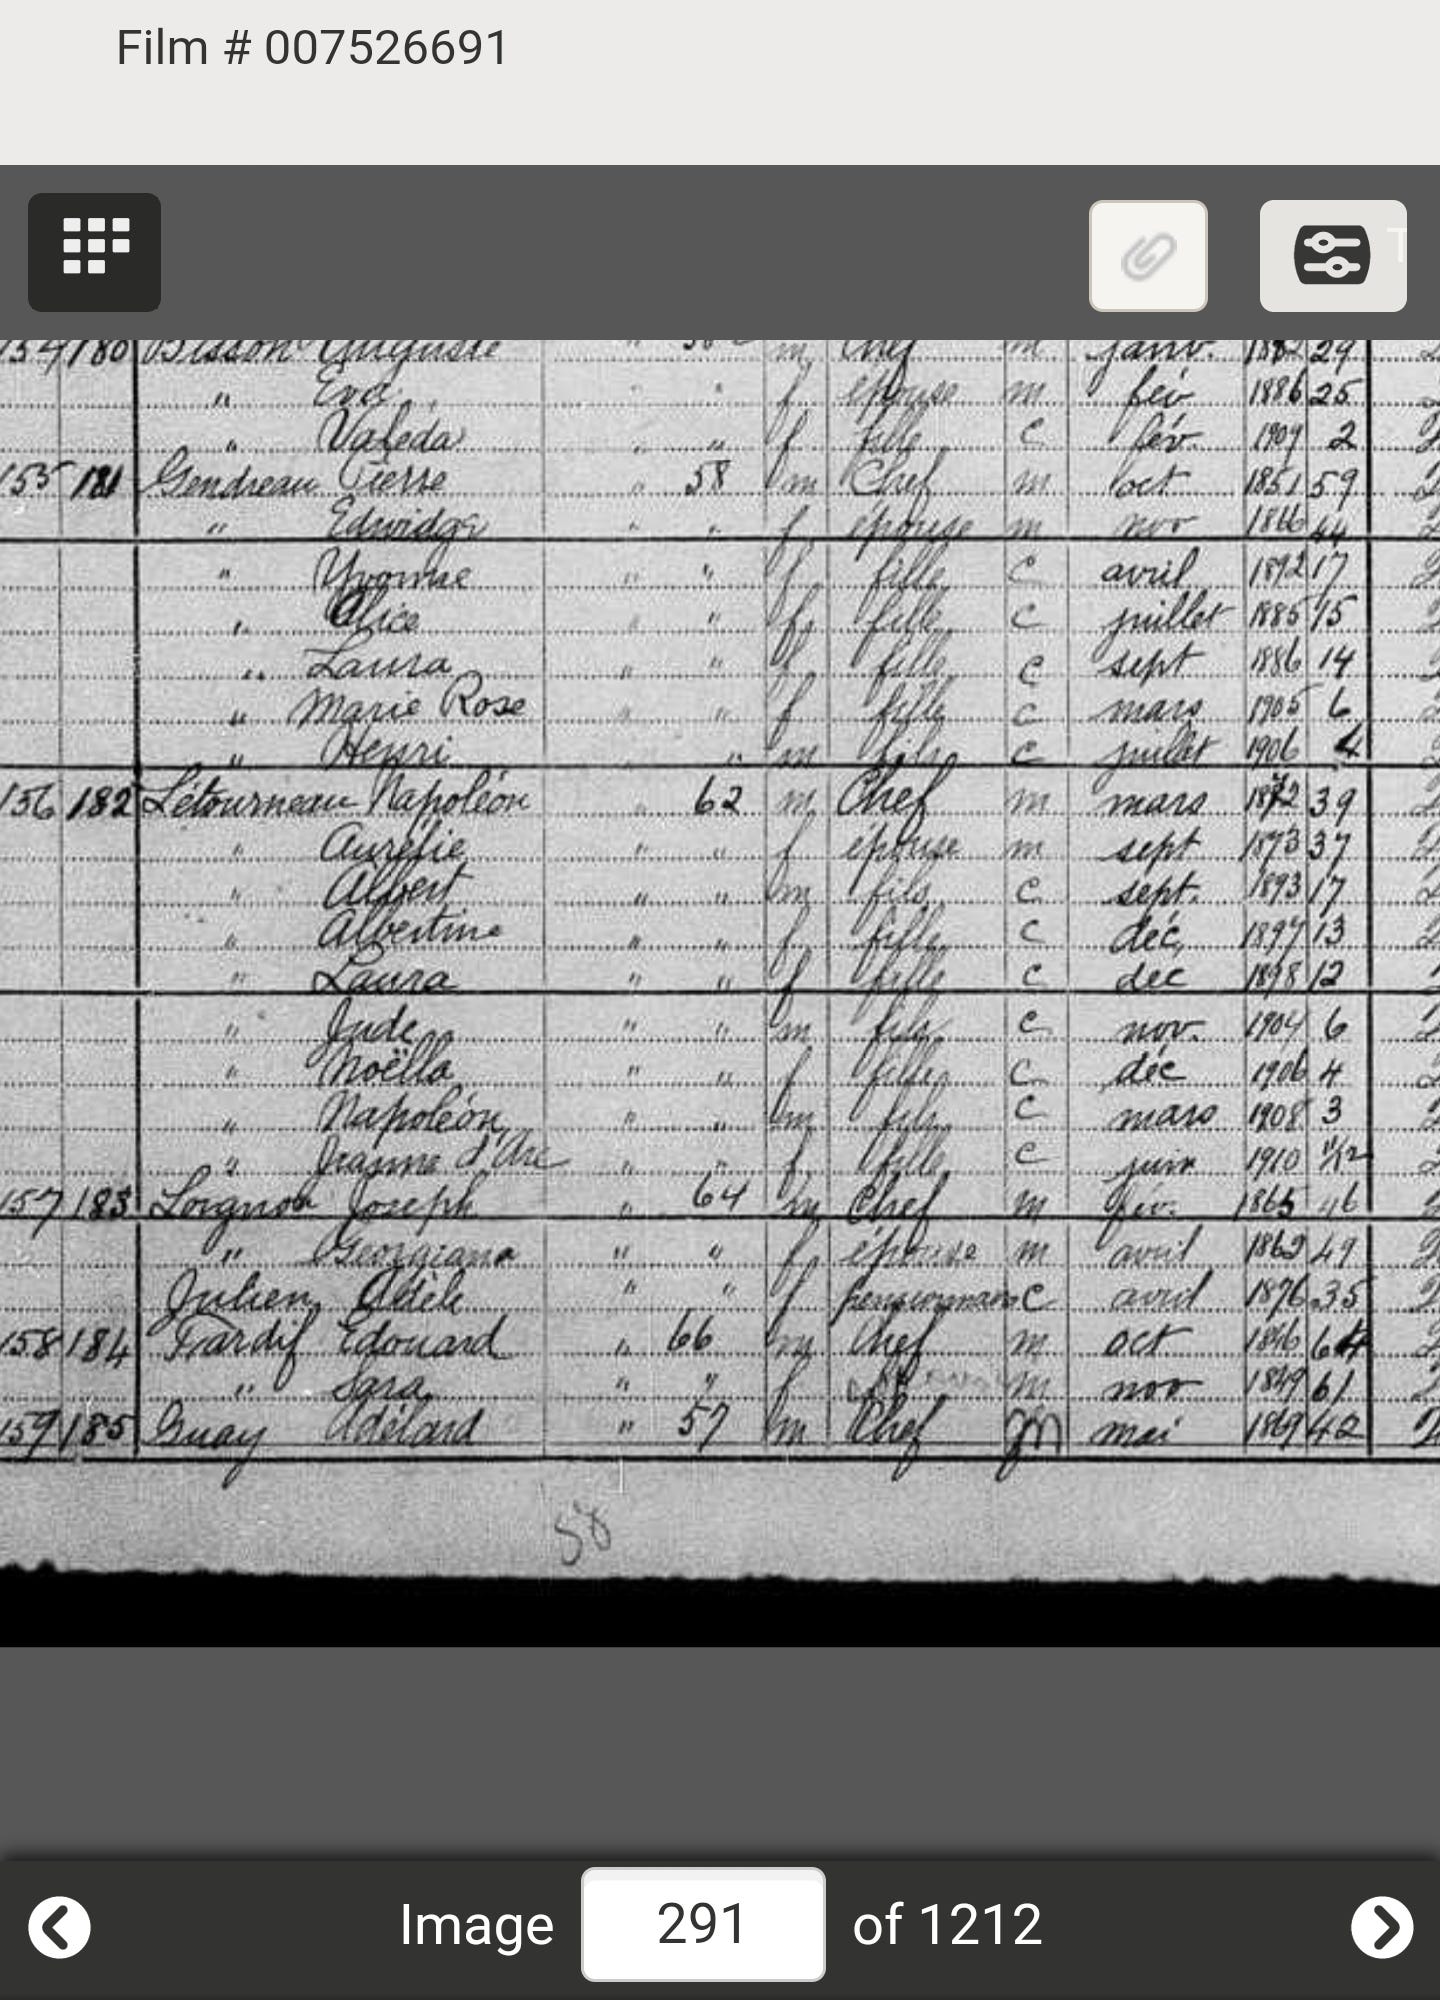 Film # 007526691
154 180 Bisson Auguste " m Chef m janv. 1882 29
" Eva " " f épouse m fév 1886 25
" Valéda " " f fille c fév. 1909 2
155 181 Gendreau Pierre " 58 m Chef m oct 1851 59
" Edwidge " " f épouse m nov 1866 44
" Yvonne " " f fille c avril 1892 17
" Alice " " f fille c juillet 1885 15
" Laura " " f fille c sept 1886 14
" Marie Rose " " f fille c mars 1905 6
" Henri " " m fils c juillet 1906 4
156 182 Létourneau Napoléon " 62 m Chef m mars 1872 39
" Aurélie " " f épouse m sept 1873 37
" Albert " " m fils c sept. 1893 17
" Albertine " " f fille c déc, 1897 13
" Laura " " f fille c dec 1898 12
" Jude " " m fils c nov. 1904 6
" Noëlla " " f fille c déc 1906 4
" Napoléon " " m fils c mars 1908 3
" Jeanne d'Arc " " f fille c juin 1910 11/12
157 183 Loignon Joseph " 64 m Chef m fév. 1865 46
" Georgiana " " f épouse m avril 1862 49
Julien Adèle " " f c avril 1876 35
158 184 Tardif Edouard " 66 m Chef m oct 1846 64
" Sara " " f m nov 1849 61
159 185 Guay Adélard " 57 m Chef m mai 1869 42
58
Image 291 of 1212